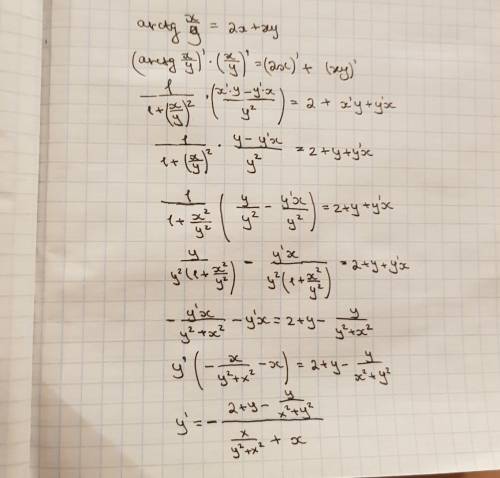 arctg x/y = 2x+xy
(arctg x/y)' · (x/y)' = (2x)' + (xy)'
1/(1+(x/y)²) · ((x'·y-y'·x)/y²) = 2 + x'y+y'x
1/(1+(x/y)²) · (y-y'x)/y² = 2+y+y'x
1/(1+x²/y²) (y/y² - y'x/y²) = 2+y+y'x
y/(y²(1+x²/y²)) - y'x/(y²(1+x²/y²)) = 2+y+y'x
-y'x/(y²+x²) - y'x = 2+y- y/(y²+x²)
y' (-x/(y²+x²) -x) = 2+y- y/(x²+y²)
y' = - (2+y- y/(x²+y²))/(x/(y²+x²) + x)